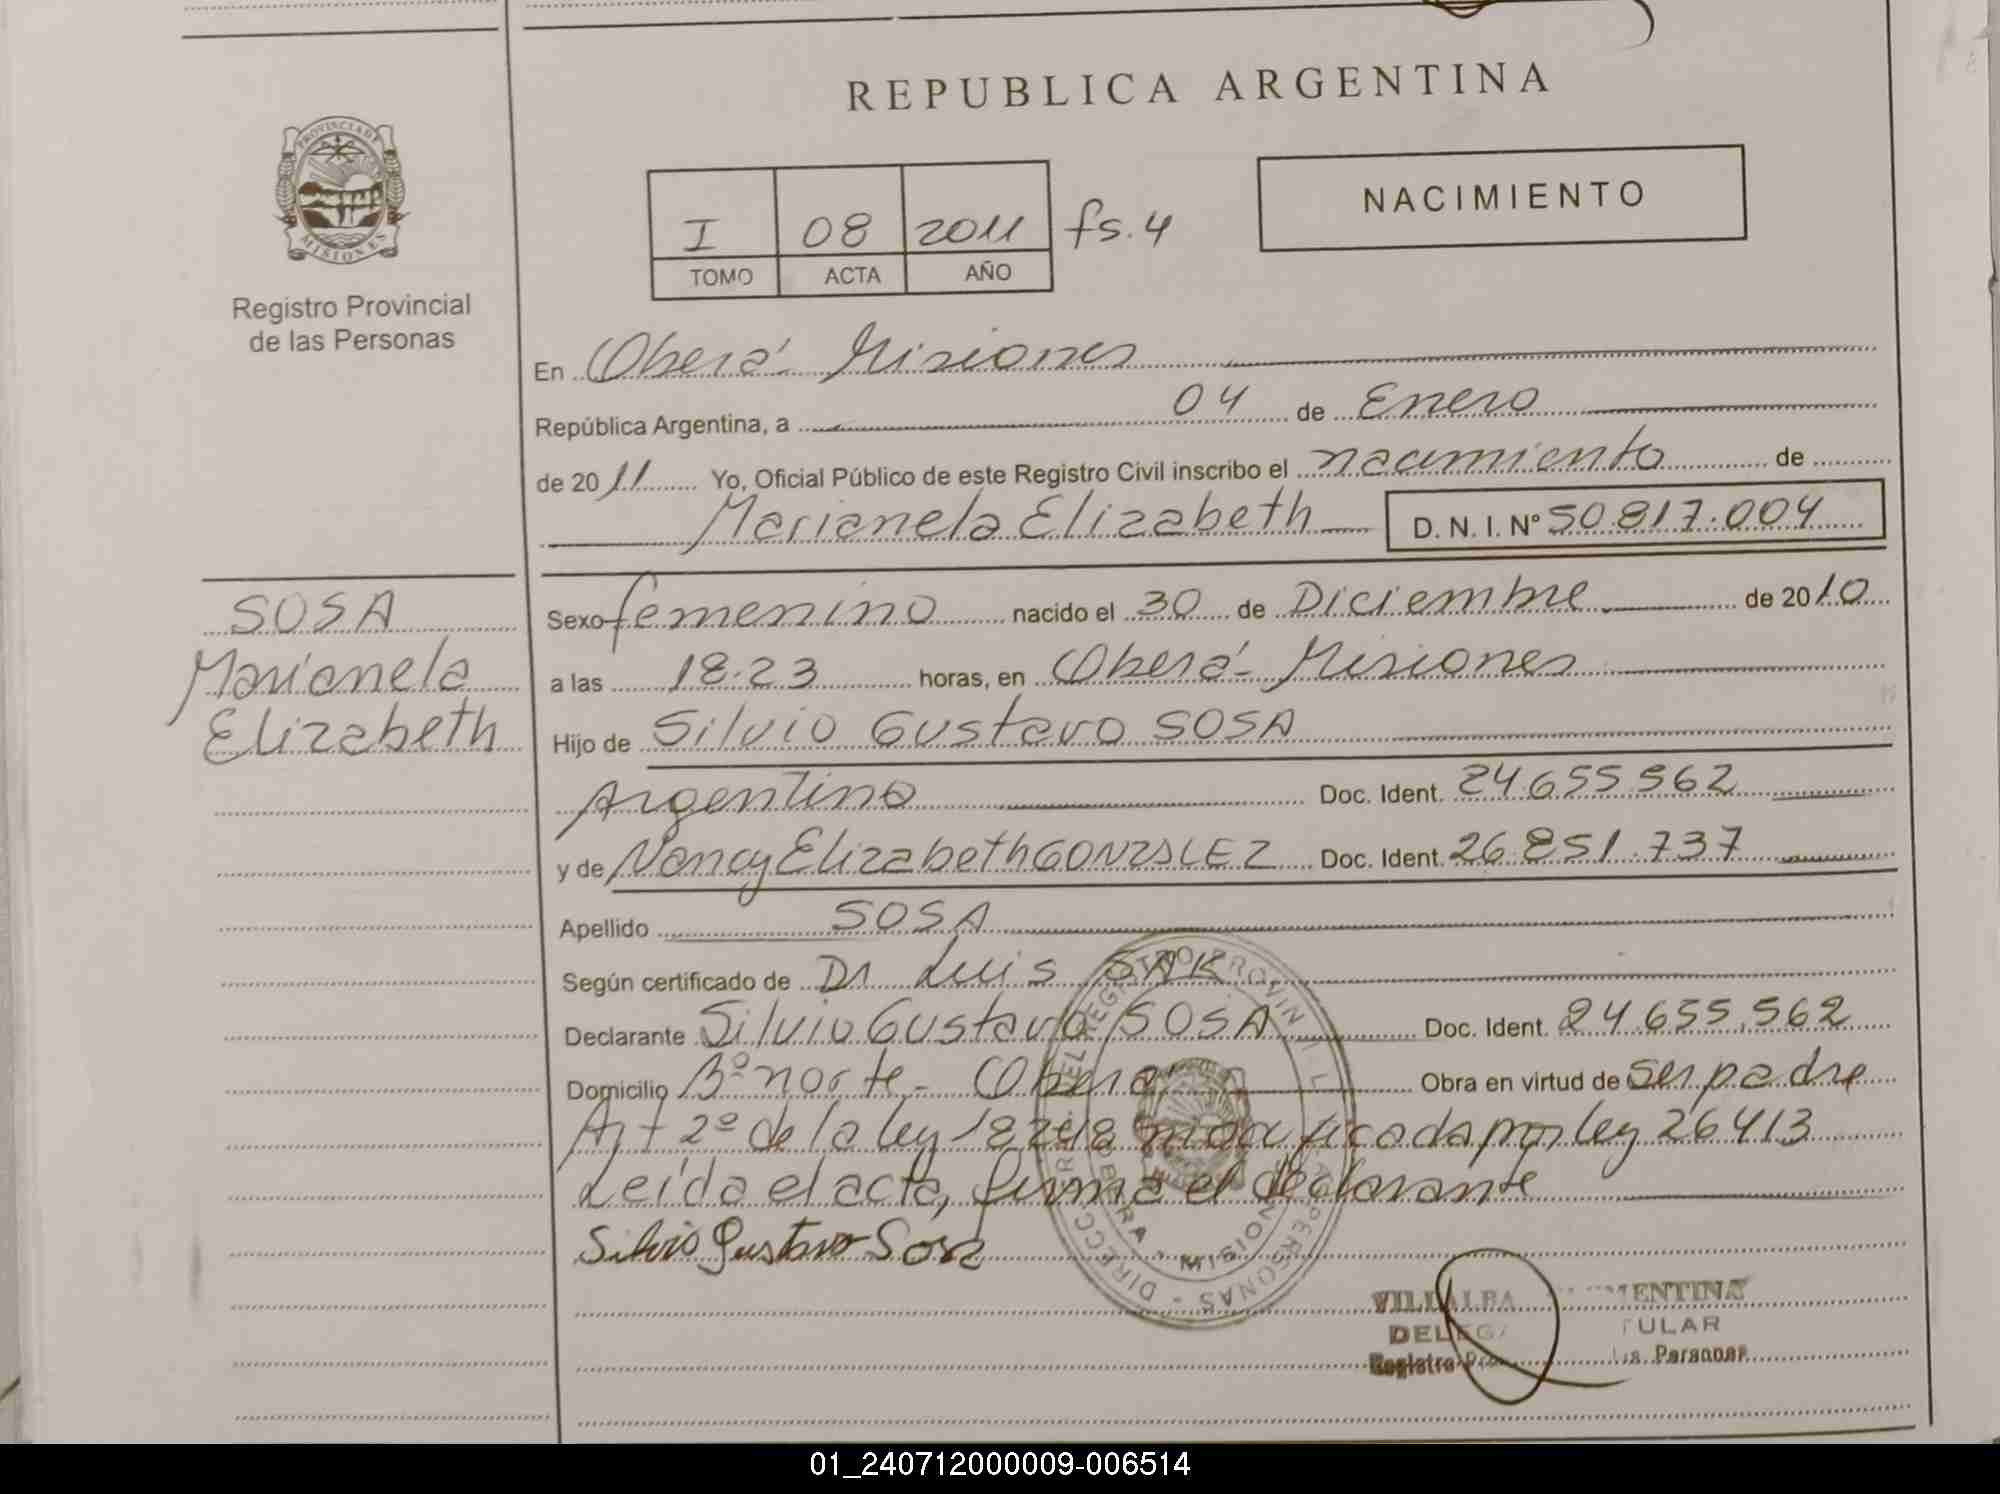 REPUBLICA ARGENTINA
PROVINCIA DE
MISIONES
Registro Provincial
de las Personas
I 08 2011 fs.4
TOMO ACTA AÑO
NACIMIENTO
En Oberá - Misiones
República Argentina, a 04 de Enero
de 2011 Yo, Oficial Público de este Registro Civil inscribo el nacimiento de
Marianela Elizabeth D. N. I. Nº 50.817.004
SOSA
Marianela
Elizabeth
Sexo femenino nacido el 30 de Diciembre de 2010
a las 18.23 horas, en Oberá - Misiones
Hijo de Silvio Gustavo SOSA
Argentino Doc. Ident. 24.655.562
y de Nancy Elizabeth GONZALEZ Doc. Ident. 26.851.737
Apellido SOSA
Según certificado de Dr Luis SAK
Declarante Silvio Gustavo SOSA Doc. Ident. 24.655.562
Domicilio Bº norte - Oberá Obra en virtud de ser padre
Art 2º de la ley 18248 modificada por ley 26413
Leída el acta, firma el declarante
Silvio Gustavo Sosa
VILLALBA MENTINA
TULAR
Registro Personas
01_240712000009-006514